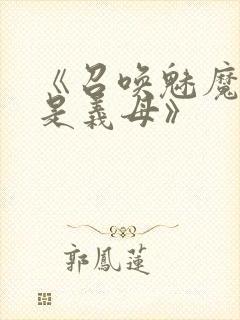 《召唤魅魔
是义母》
郭鳳蓮